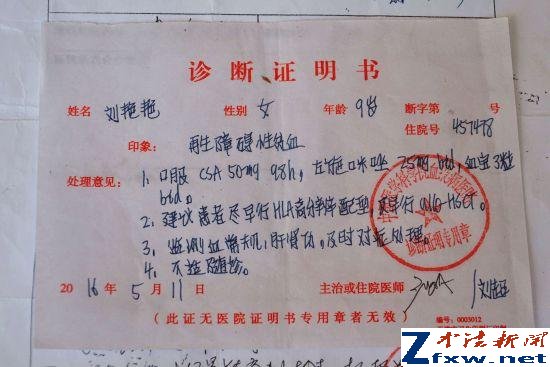 诊断证明书
姓名 刘艳艳 性别 女 年龄 9岁 断字第 号
住院号 457478
印象: 再生障碍性贫血
处理意见: 1、口服 CSA 50mg q8h, 左旋咪唑 25mg bid, 血宝3粒
bid.
2、建议患者尽早行HLA高分辨配型, 尽早行 allo-HSCT。
3、监测血常规, 肝肾功, 及时对症处理。
4、不适随诊。
诊断证明专用章
2016年5月11日 主治或住院医师
(此证无医院证明书专用章者无效)
编号: 0003012
才法新闻
Zfxw.net